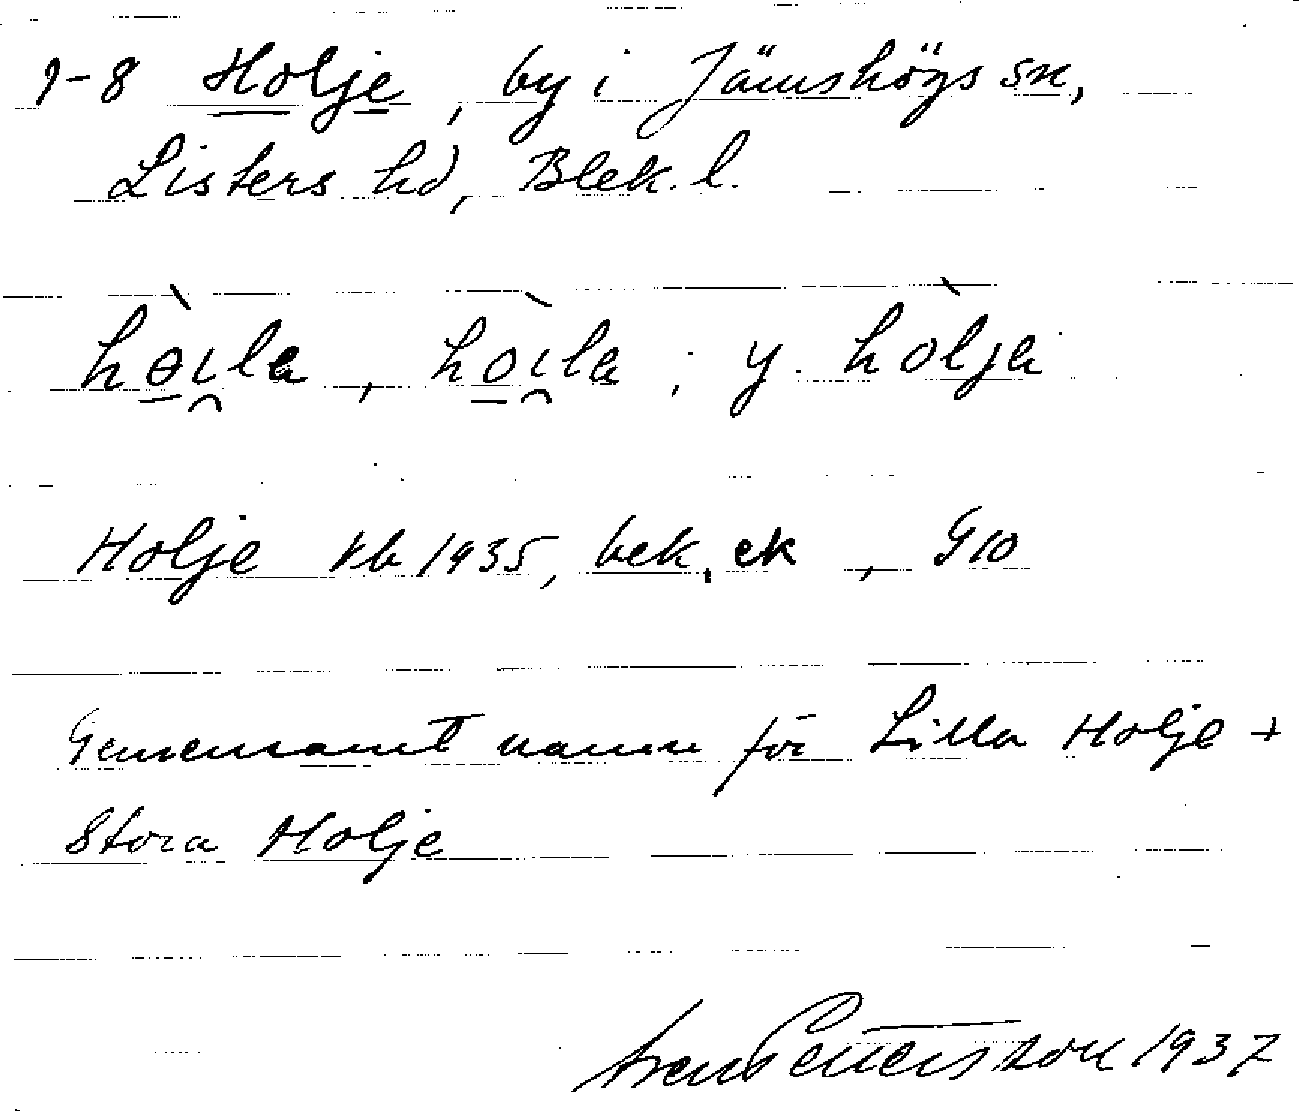 1-8 Holje, by i Jämshögs sn,
Listers hd, Blek. l.
hɵ̀i̯la, hòi̯la; y. hòlja
Holje Kb 1935, bek. ek, G10
Gemensamt namn för Lilla Holje +
Stora Holje
Pettersson 1937